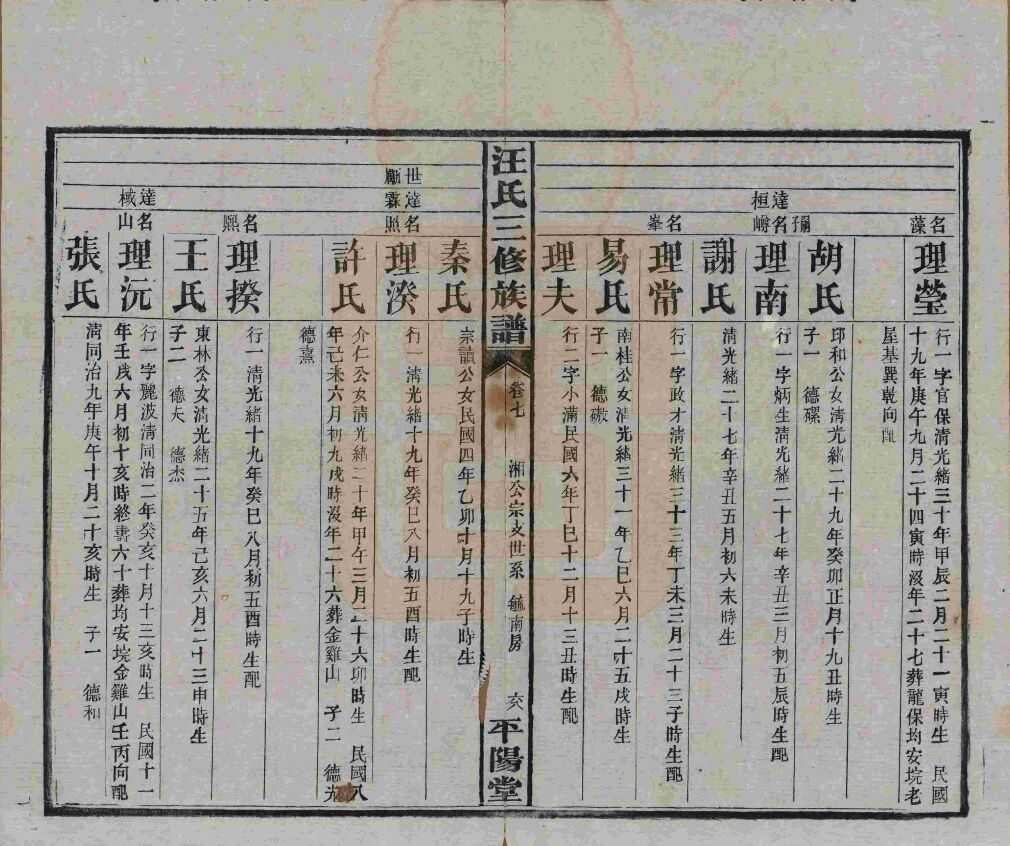 名藻
理瑩
行一字官保清光緒三十年甲辰二月二十一寅時生 民國
十九年庚午九月二十四寅時沒年二十七葬龍保均安垸老
屋基巽乾向配
胡氏
邱和公女清光緒二十九年癸卯正月十九丑時生
子一 德礤
達桓
名嶟
理南
行一字炳生清光緒二十七年辛丑三月初五辰時生配
謝氏
清光緒二十七年辛丑五月初六未時生
名峯
理常
行一字政才清光緒三十三年丁未三月二十三子時生配
易氏
南桂公女清光緒三十一年乙巳六月二十五戌時生
子一 德礮
理夫
行二字小滿民國六年丁巳十二月十三丑時生配
汪氏三修族譜
卷七
湘公宗支世系
毓南房
平陽堂
秦氏
宗讀公女民國四年乙卯十月十九子時生
世勵
達霖
名照
理湀
行一清光緒十九年癸巳八月初五酉時生配
許氏
介仁公女清光緒二十年甲午三月二十六卯時生 民國八
年己未六月初九戌時沒年二十六葬金雞山 子二 德光
德熹
名熙
理揆
行一清光緒十九年癸巳八月初五酉時生配
王氏
東林公女清光緒二十五年己亥六月二十三申時生
子二 德夫 德杰
達棫
名山
理沅
行一字麗波清同治二年癸亥十月十三亥時生 民國十一
年壬戌六月初十亥時終壽六十葬均安垸金雞山壬丙向配
張氏
清同治九年庚午十月二十亥時生 子一 德和